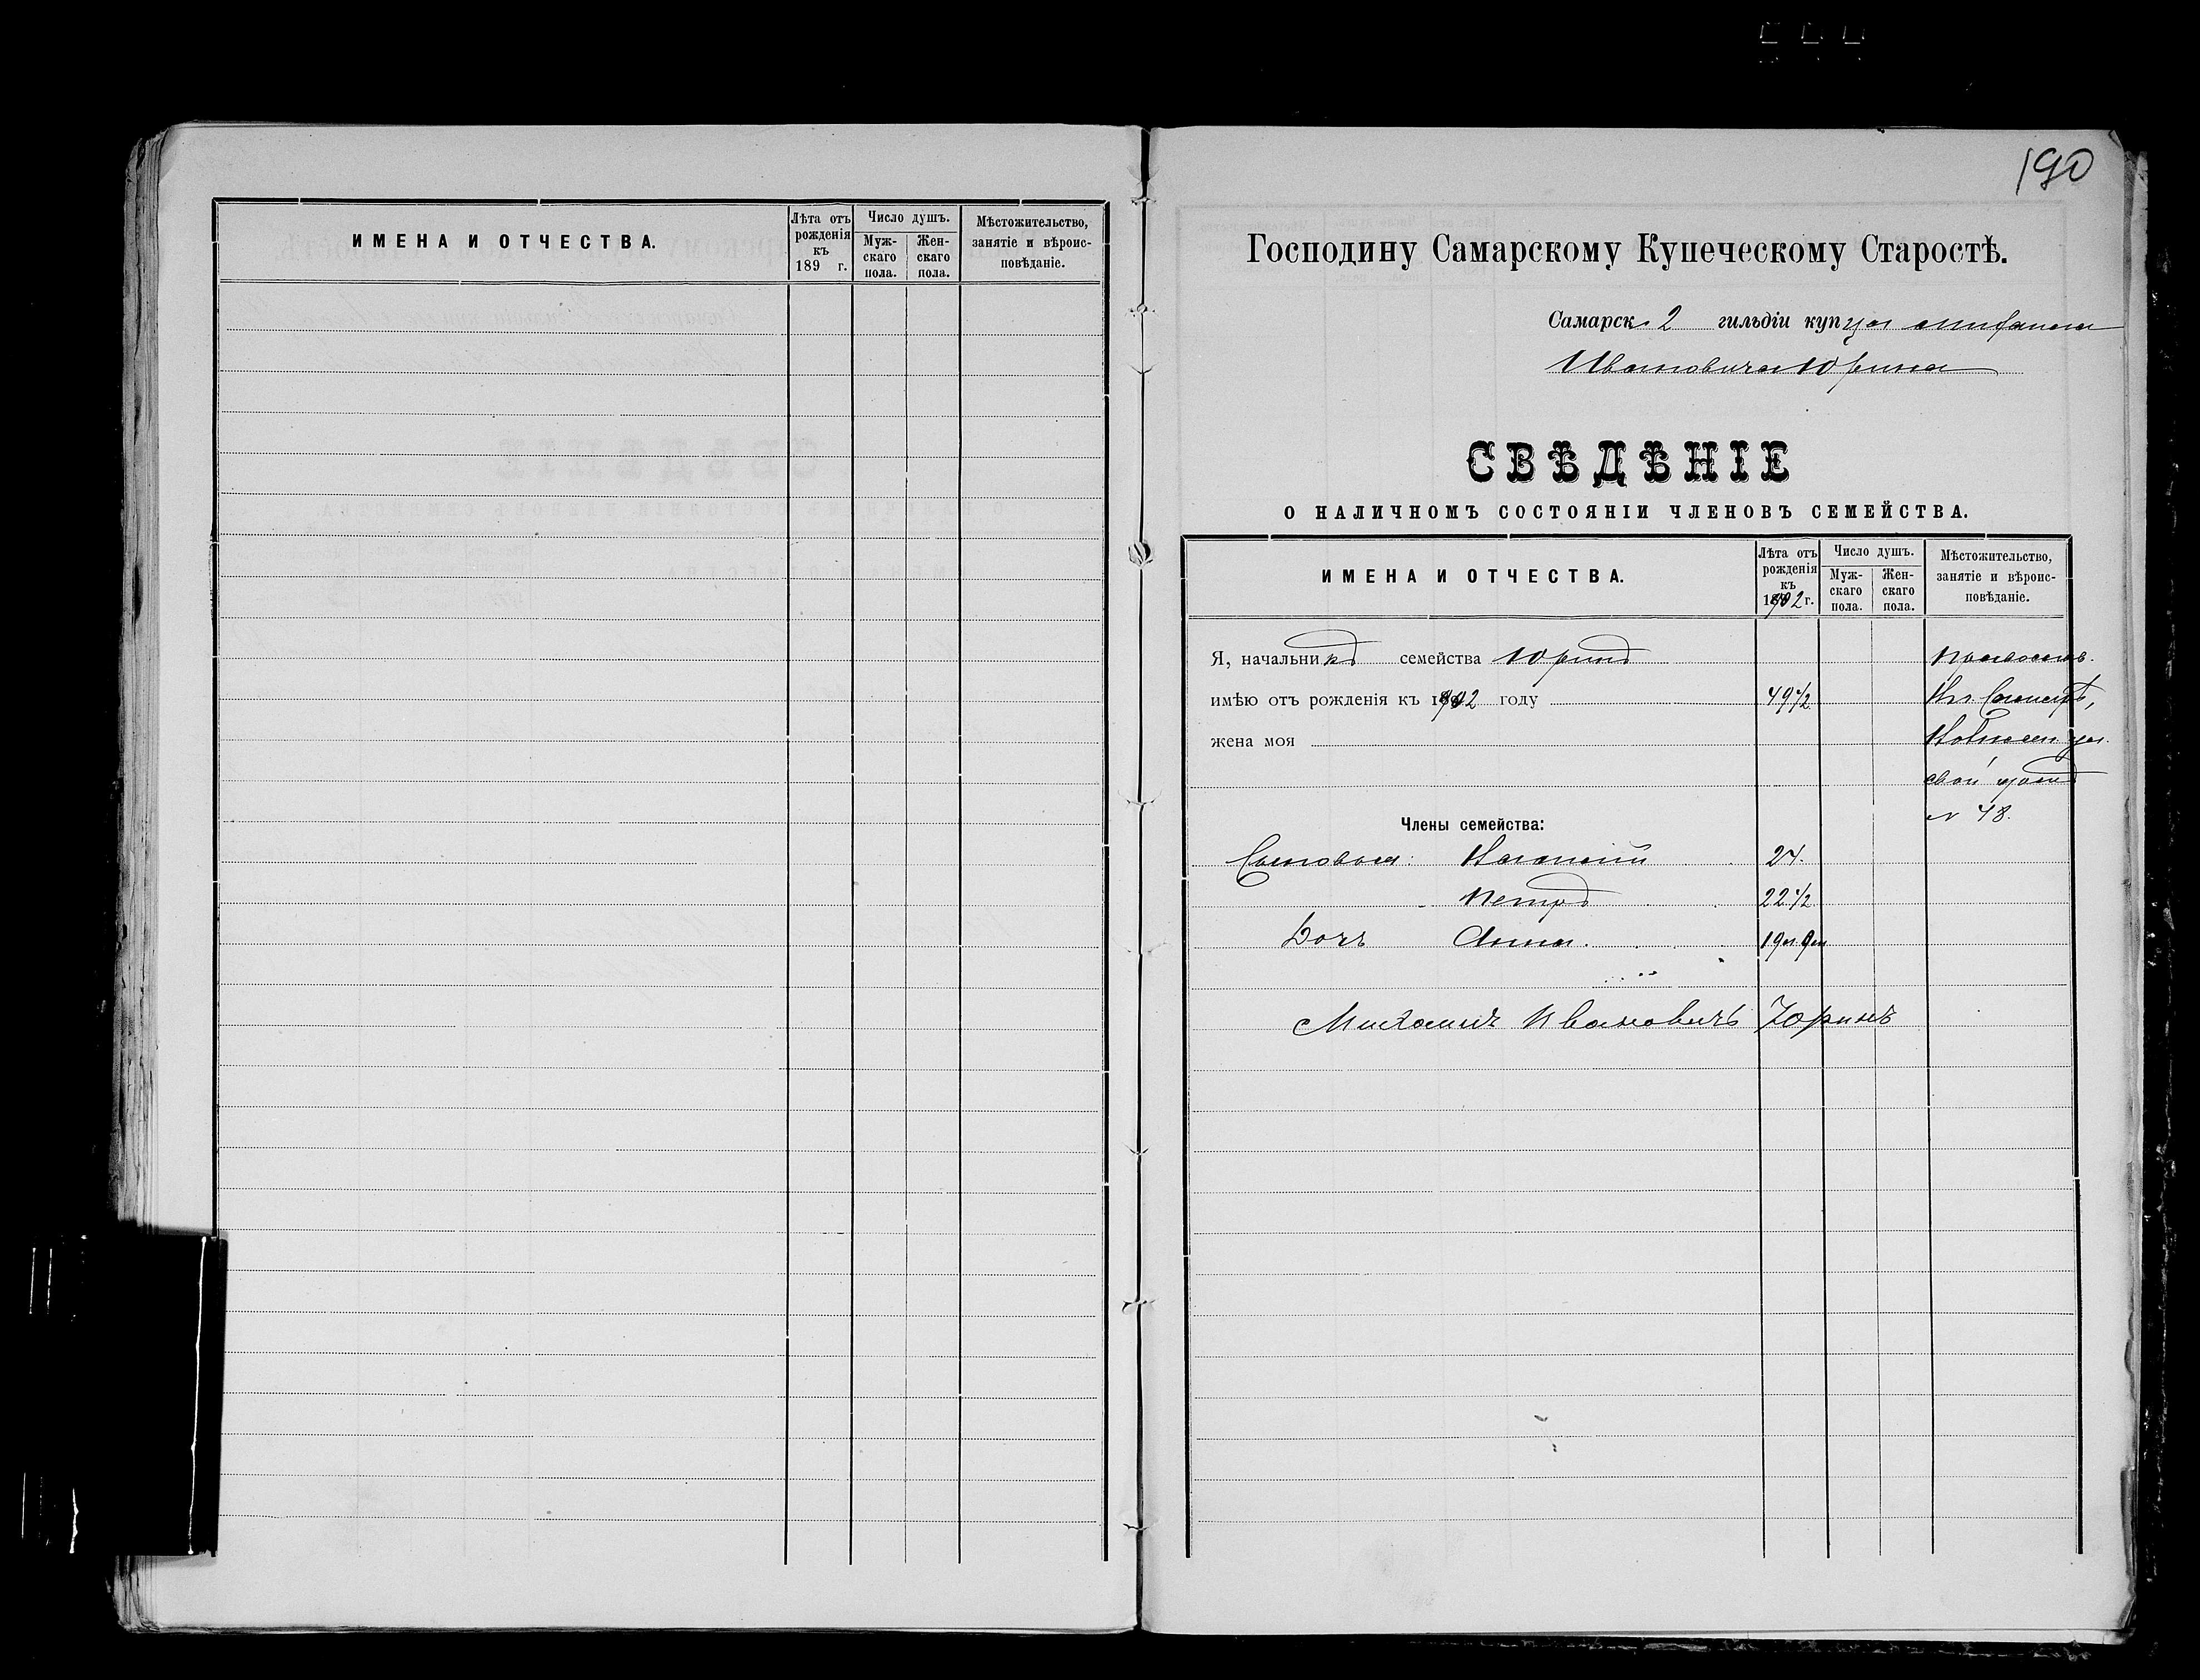 ИМЕНА И ОТЧЕСТВА.
Лѣта отъ рожденія къ 189 г.
Число душъ.
Мужскаго пола.
Женскаго пола.
Мѣстожительство, занятіе и вѣроисповѣданіе.
190
Господину Самарскому Купеческому Старостѣ.
Самарск. 2 гильдіи купца Михаила
Ивановича Юрина
СВѢДѢНІЕ
О НАЛИЧНОМЪ СОСТОЯНІИ ЧЛЕНОВЪ СЕМЕЙСТВА.
ИМЕНА И ОТЧЕСТВА.
Лѣта отъ рожденія къ 1902 г.
Число душъ.
Мужскаго пола.
Женскаго пола.
Мѣстожительство, занятіе и вѣроисповѣданіе.
Я, начальникъ семейства Юринъ Православ.
имѣю отъ рожденія къ 1902 году 49 1/2 Въ г. Самарѣ,
жена моя ул.
свой домъ
№ 48.
Члены семейства:
Сыновья: 24.
Петръ 22 1/2
Дочь Анна. 19 л. 9 м
Михаилъ Ивановичъ Юринъ